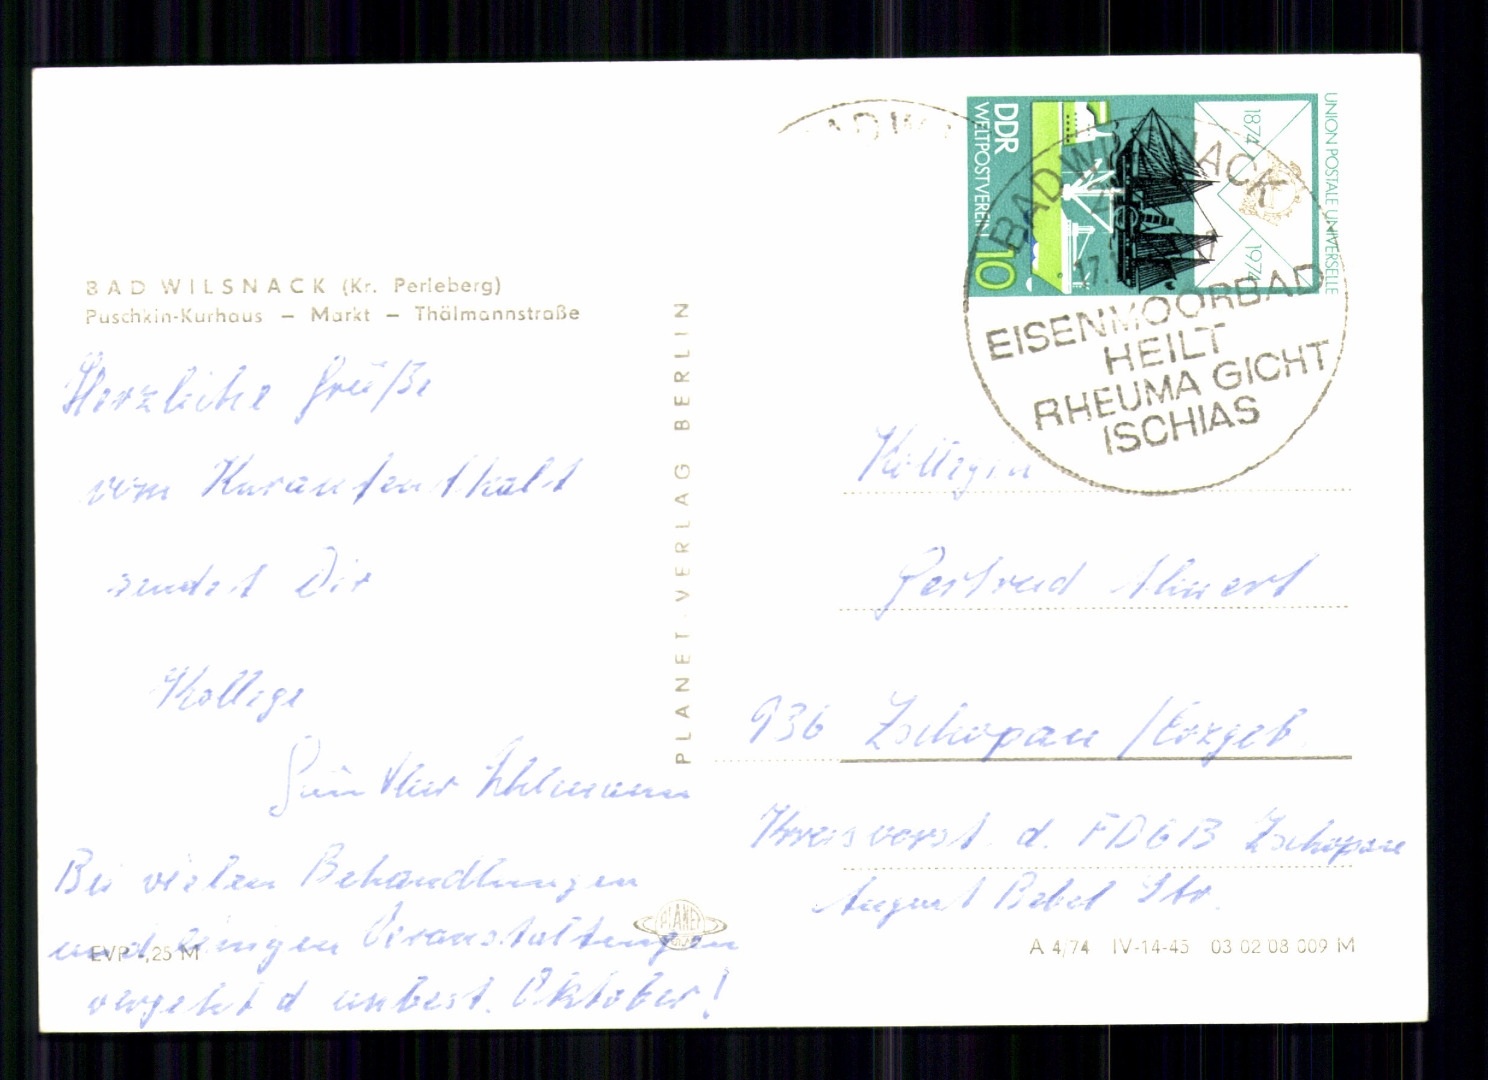 BAD WILSNACK (Kr. Perleberg)
Puschkin-Kurhaus — Markt — Thälmannstraße
Herzliche Grüße
vom Kuraufenthalt
sendet Dir
Kollege
Günther Uhlmann
Bei vielen Behandlungen
und einigen Veranstaltungen
vergeht d unbest. Oktober!
EVP -,25 M
PLANET-VERLAG BERLIN
PLANET
BAD WI
UNION POSTALE UNIVERSELLE
1874
1974
DDR
WELTPOSTVEREIN
10
BAD WILSNACK
17.
EISENMOORBAD
HEILT
RHEUMA GICHT
ISCHIAS
Kollegin
Gertrud Ahnert
936 Zschopau /Erzgeb.
Kreisvorst. d. FDGB Zschopau
August Bebel Str.
A 4/74 IV-14-45 03 02 08 009 M